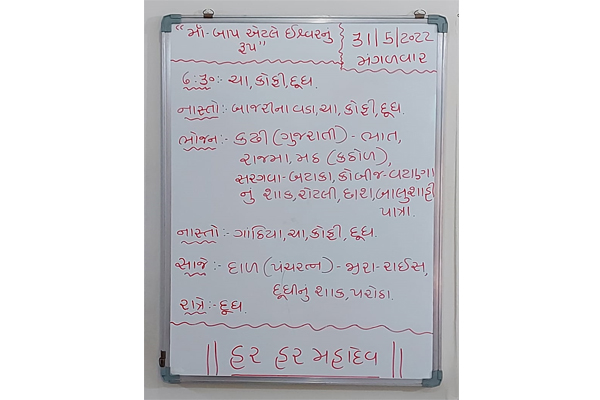 "માઁ-બાપ એટલે ઈશ્વરનુ
રૂપ"
૩૧/૫/૨૦૨૨
મંગળવાર
૭:૩૦:- ચા,કોફી,દૂધ.
નાસ્તો:- બાજરીના વડા,ચા,કોફી,દૂધ.
ભોજન:- કઢી(ગુજરાતી)-ભાત,
રાજમા,મઠ(કઠોળ),
સરગવા-બટાકા,કોબીજ-વટાણા
નુ શાક,રોટલી,છાશ,બાલુશાહી
પાત્રા.
નાસ્તો:- ગાંઠિયા,ચા,કોફી,દૂધ.
સાંજે:- દાળ(પંચરત્ન)-જીરા-રાઈસ,
દૂધીનું શાક,પરોઠા.
રાત્રે:- દૂધ.
|| હર હર મહાદેવ ||